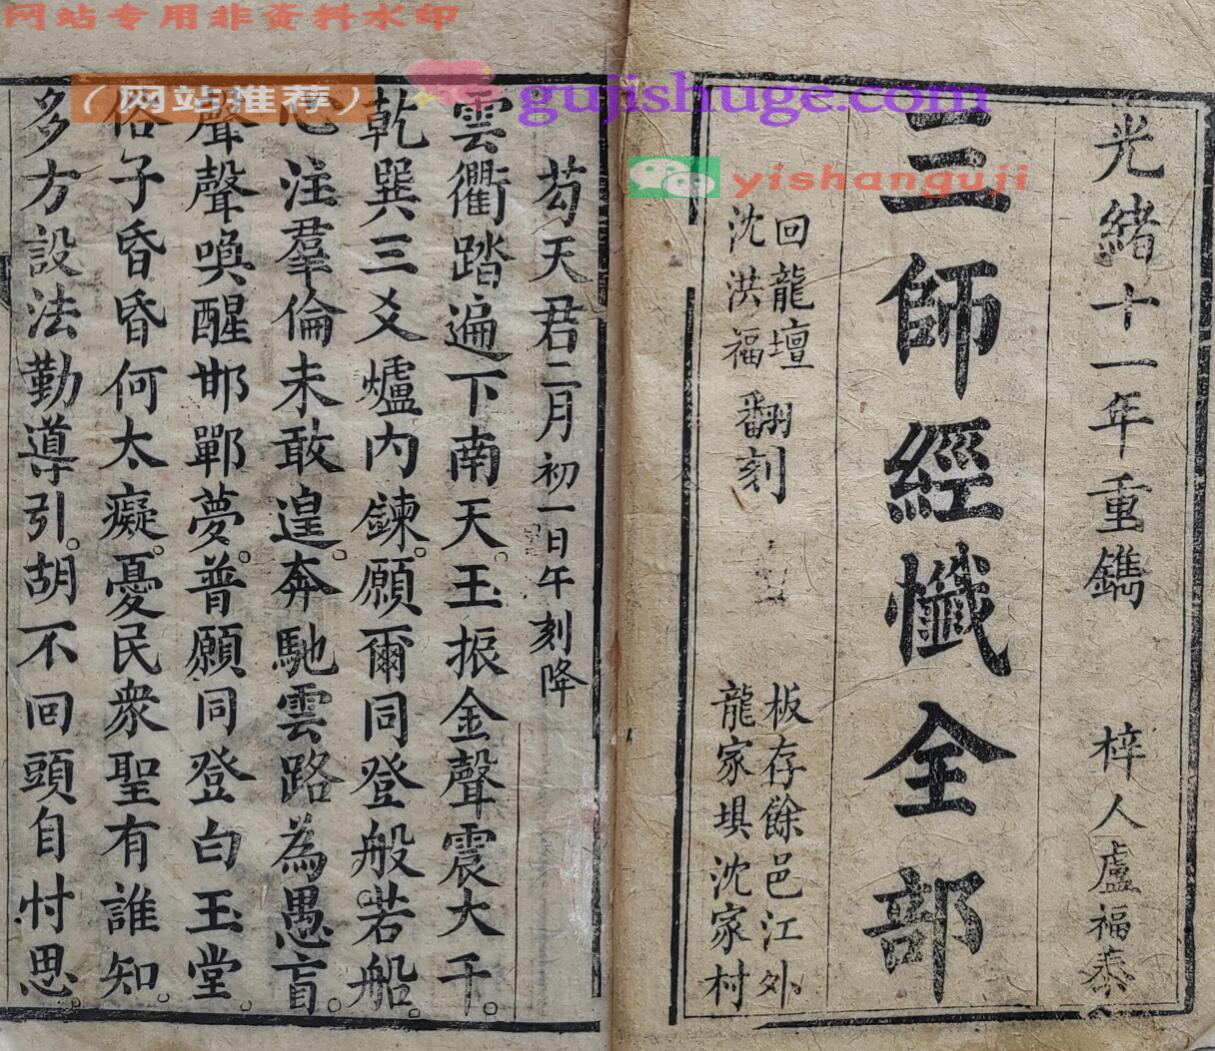 网站专用非资料水印
(网站推荐)
gujishuge.com
yishanguji
光緒十一年重鐫
梓人盧福泰
三師經懺全部
回龍壇
沈洪福
翻刻
板存餘邑江外
龍家垻沈家村
苟天君二月初一日午刻降
雲衢踏遍下南天玉振金聲震大千。
乾巽三爻爐內鍊。願爾同登般若船。
心注羣倫未敢遑。奔馳雲路為愚盲。
聲聲喚醒邯鄲夢。普願同登白玉堂。
俗子昏昏何太癡。憂民衆聖有誰知。
多方設法勤導引。胡不回頭自忖思。